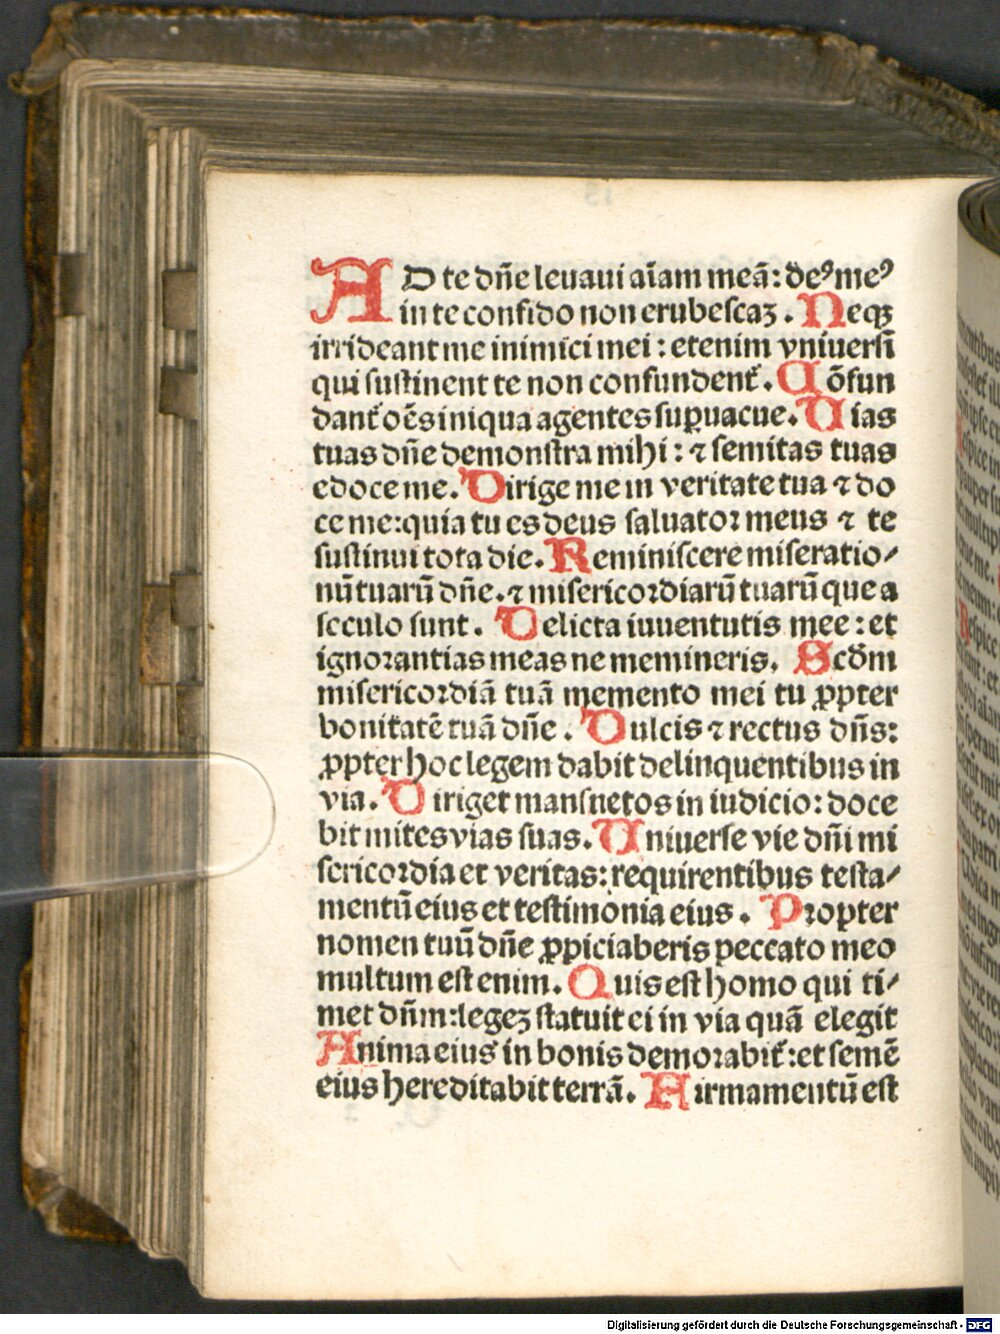 AD te dñe leuaui aīam meā: deꝰ meꝰ
in te confido non erubescaꝫ . Neqꝫ
irrideant me inimici mei : etenim vniuersi
qui sustinent te non confundent᷑. Cōfun
dant᷑ oēs iniqua agentes suꝑuacue. Uias
tuas dñe demonstra mihi : ⁊ semitas tuas
edoce me. Dirige me in veritate tua ⁊ do
ce me: quia tu es deus saluatoꝛ meus ⁊ te
sustinui tota die. Reminiscere miseratio⸗
nū tuarū dñe. ⁊ misericoꝛdiarū tuarū que a
seculo sunt . Delicta iuuentutis mee : et
ignoꝛantias meas ne memineris. Scđm
misericoꝛdiā tuā memento mei tu ꝓpter
bonitatē tuā dñe . Dulcis ⁊ rectus dñs:
ꝓpter hoc legem dabit delinquentibus in
via. Diriget mansuetos in iudicio: doce
bit mites vias suas. Uniuerse vie dñi mi
sericoꝛdia et veritas: requirentibus testa⸗
mentū eius et testimonia eius . Pꝛopter
nomen tuū dñe ꝓpiciaberis peccato meo
multum est enim. Quis est homo qui ti⸗
met dñm: legeꝫ statuit ei in via quā elegit
Anima eius in bonis demoꝛabit᷑: et semē
eius hereditabit terrā. Firmamentū est
Digitalisierung gefördert durch die Deutsche Forschungsgemeinschaft - DFG